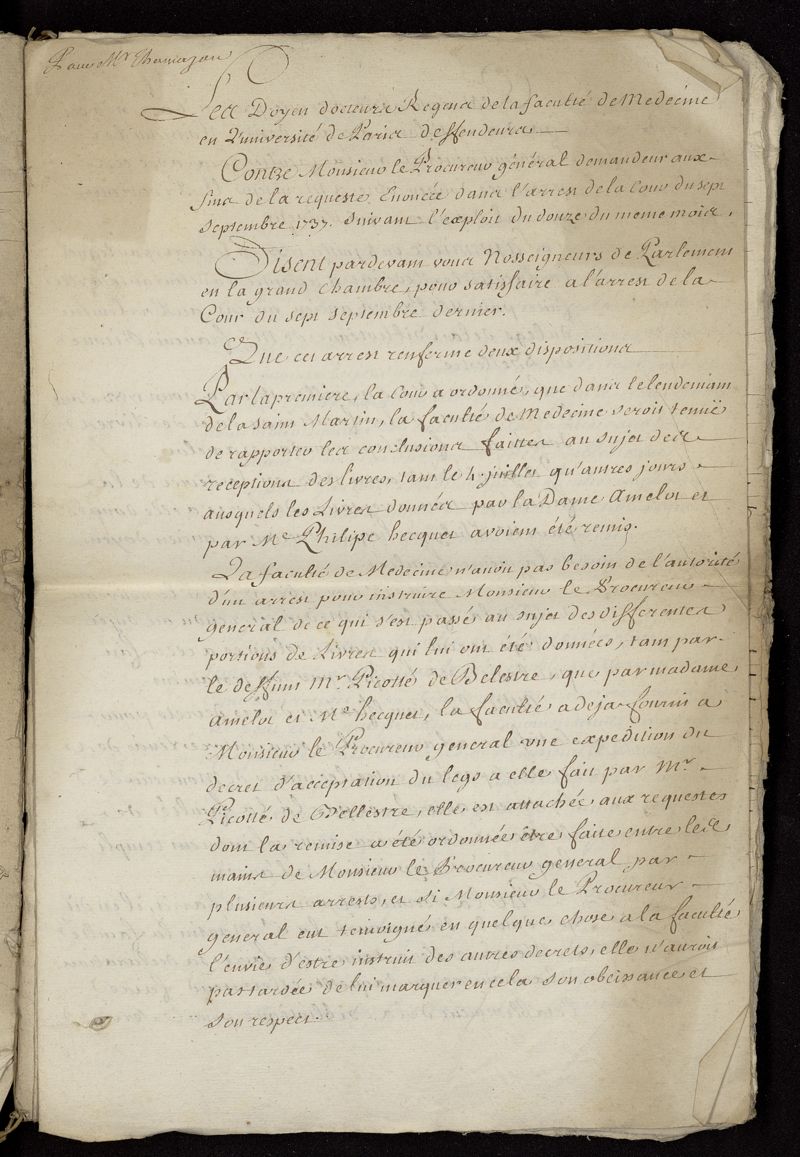 Pour Mr Thomazon
Les Doyen docteurs Regens de la faculté de Medecine
en L'université de Paris deffendeurs
Contre Monsieur le Procureur général demandeur aux
fins de la requeste Enoncée dans l'arrest de la Cour du sept
septembre 1737. suivant l'exploit du douze du meme mois,
Disent pardevant vous Nosseigneurs de Parlement
en la grand Chambre, pour satisfaire a l'arrest de la
Cour du sept septembre dernier.
Que cet arrest renferme deux dispositions
Par la premiere, la Cour a ordonné, que dans le lendemain
de la saint Martin, la faculté de Medecine seroit tenuë
de rapporter les conclusions faittes au sujet des
receptions des livres, tant le 4. juillet qu'autres jours
ausquels les Livres donnés par la Dame Amelot et
par Me Philipe hecquet avoient été remis.
La faculté de Medecine n'avoit pas besoin de l'autorité
d'un arrest pour instruire Monsieur le Procureur
general de ce qui s'est passé au sujet des differentes
portions de Livres qui lui ont été données, tant par
le deffunt Mr Picotté de Belestre, que par madame
Amelot et Me hecquet, la faculté a deja fourni a
Monsieur le Procureur general une expedition du
decret d'acceptation du legs a elle fait par Mr
Picotté de Bellestre, elle est attachée aux requestes
dont la remise a été ordonnée être faite entre les
mains de Monsieur le Procureur general par
plusieurs arrests, et si Monsieur le Procureur
general eut temoigné en quelque chose a la faculté
l'envie d'estre instruit des autres decrets, elle n'auroit
pas tardée de lui marquer en cela son obeissance et
son respect.